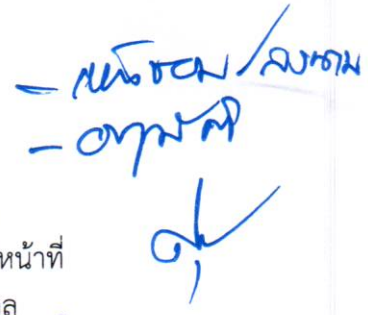 - เห็นชอบ/ลงนาม
- อนุมัติ
หน้าที่
ล